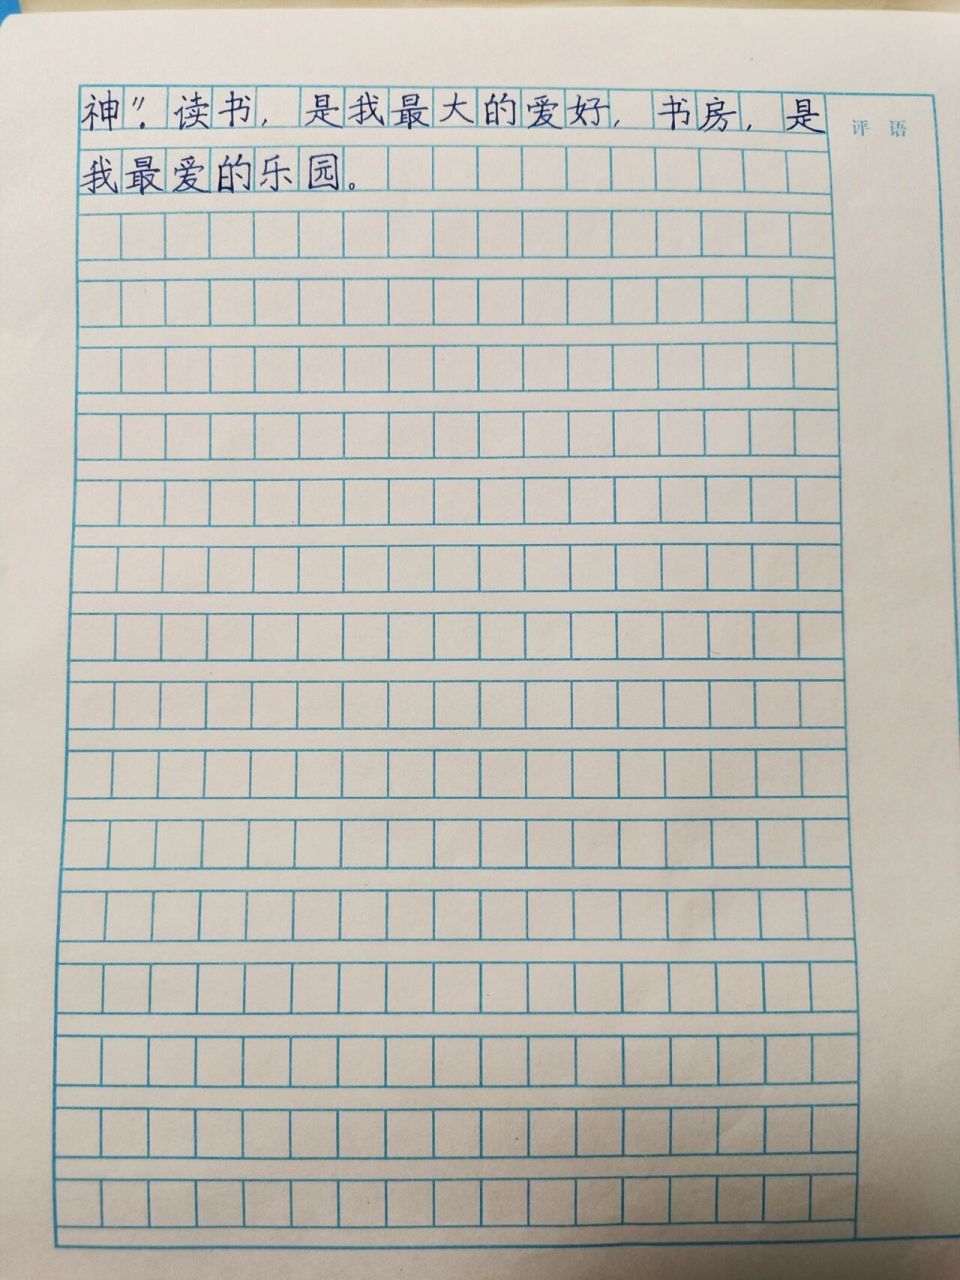 神”。读书，是我最大的爱好，书房，是
我最爱的乐园。
评 语